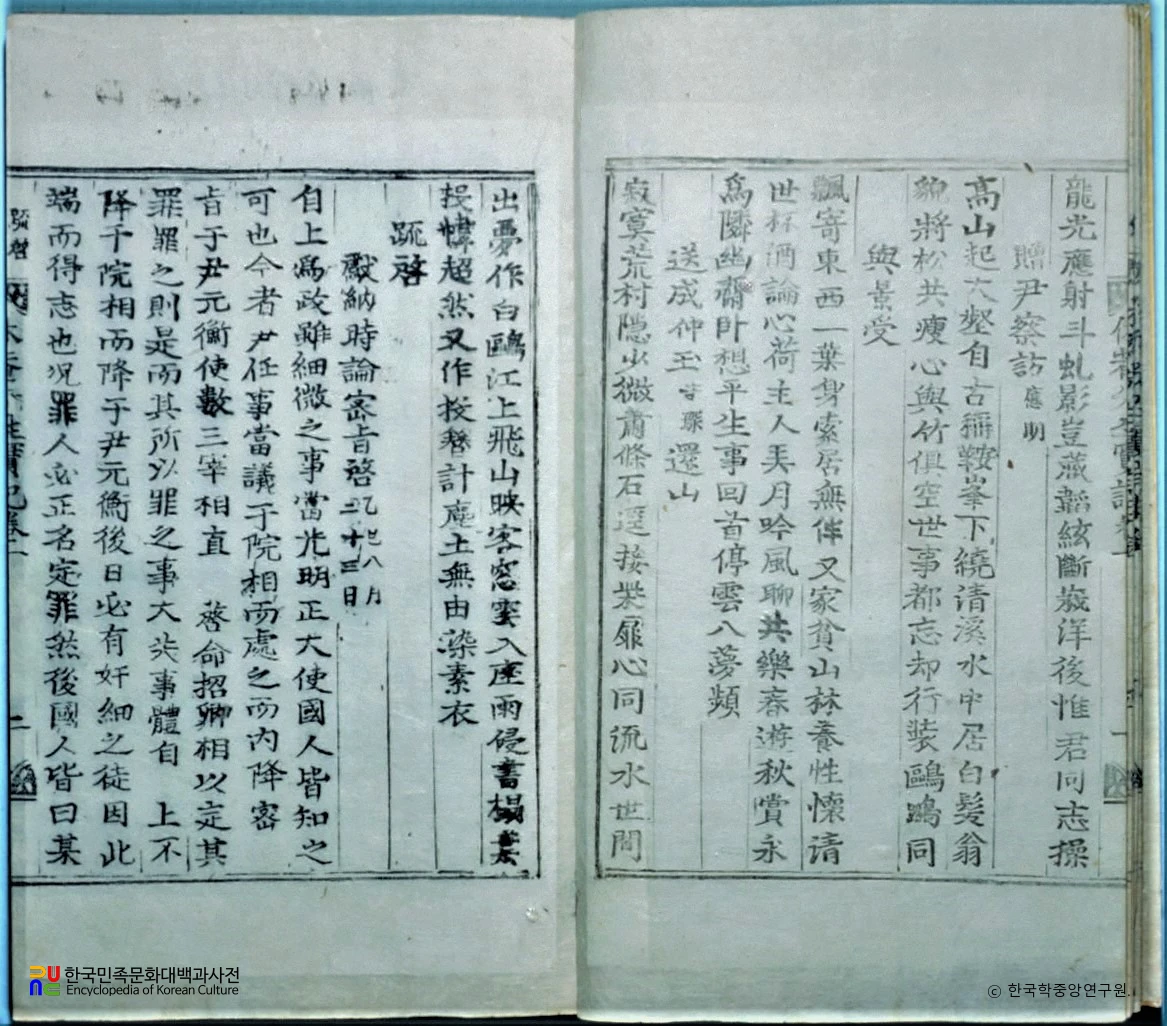 龍光應射斗虬影豈藏韜絃斷峩洋後惟君同志操
贈尹察訪應明
高山起大壑自古稱鞍峯下繞清溪水中居白髮翁
貌將松共瘦心與竹俱空世事都忘却行裝鷗鷺同
與景受
飄寄東西一葉身索居無伴又家貧山林養性懷請
世杯酒論心荷主人美月吟風聊共樂春遊秋賞永
爲隣幽齋卧想平生事回首停雲入夢頻
送成仲玉琛還山
寂寞荒村隱少微蕭條石逕接柴扉心同流水世間
出夢作白鷗江上飛山映客窓雲入座雨侵書榻葉
投幃超然又作投簪計塵土無由染素衣
疏啓
獻納時論密旨啓乙巳八月二十三日
自上爲政雖細微之事當光明正大使國人皆知之
可也今者尹任事當議于院相而處之而內降密
旨于尹元衡使數三宰相直 啓命招卿相以定其
罪罪之則是而其所以罪之事大失事體自 上不
降于院相而降于尹元衡後日必有奸細之徒因此
端而得志也况罪人必正名定罪然後國人皆曰某
疏啓
二
한국민족문화대백과사전
Encyclopedia of Korean Culture
ⓒ 한국학중앙연구원